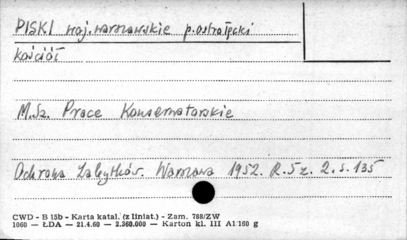 PISKI woj. warszawskie p. ostrołęcki
kościół
M. Sz. Prace Konserwatorskie
Ochrona Zabytków. Warszawa 1952. R. 5 z. 2. s. 135
CWD - B 15b - Karta katal. (z liniat.) - Zam. 788/ZW
1060 — ŁDA — 21.4.60 — 2.360.000 — Karton kl. III A1 160 g